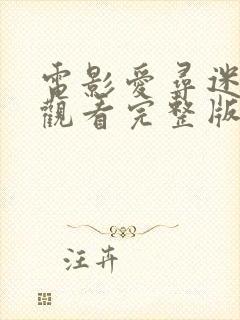 電影愛尋迷
觀看完整版
汪卉